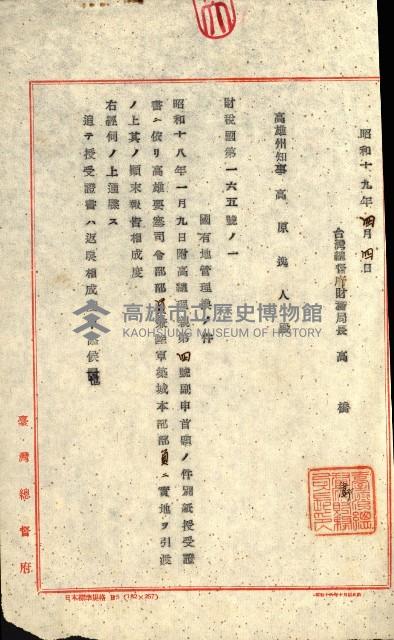 昭和十九年四月四日
台灣總督府財務局長 高橋 衛
高雄州知事 高原逸人殿
財稅國第一六五號ノ一
國有地管理換ノ件
昭和十八年一月九日附高總理號第四號副申首題ノ件別紙授受證
書ニ依リ高雄要塞司令部部員兼陸軍築城本部部員ニ實地ヲ引渡
ノ上其ノ顛末報告相成度
右經伺ノ上通牒ス
追テ授受證書ハ返戾相成
臺灣總督府
高雄市立歷史博物館
KAOHSIUNG MUSEUM OF HISTORY
日本標準規格 B5 (182×257)